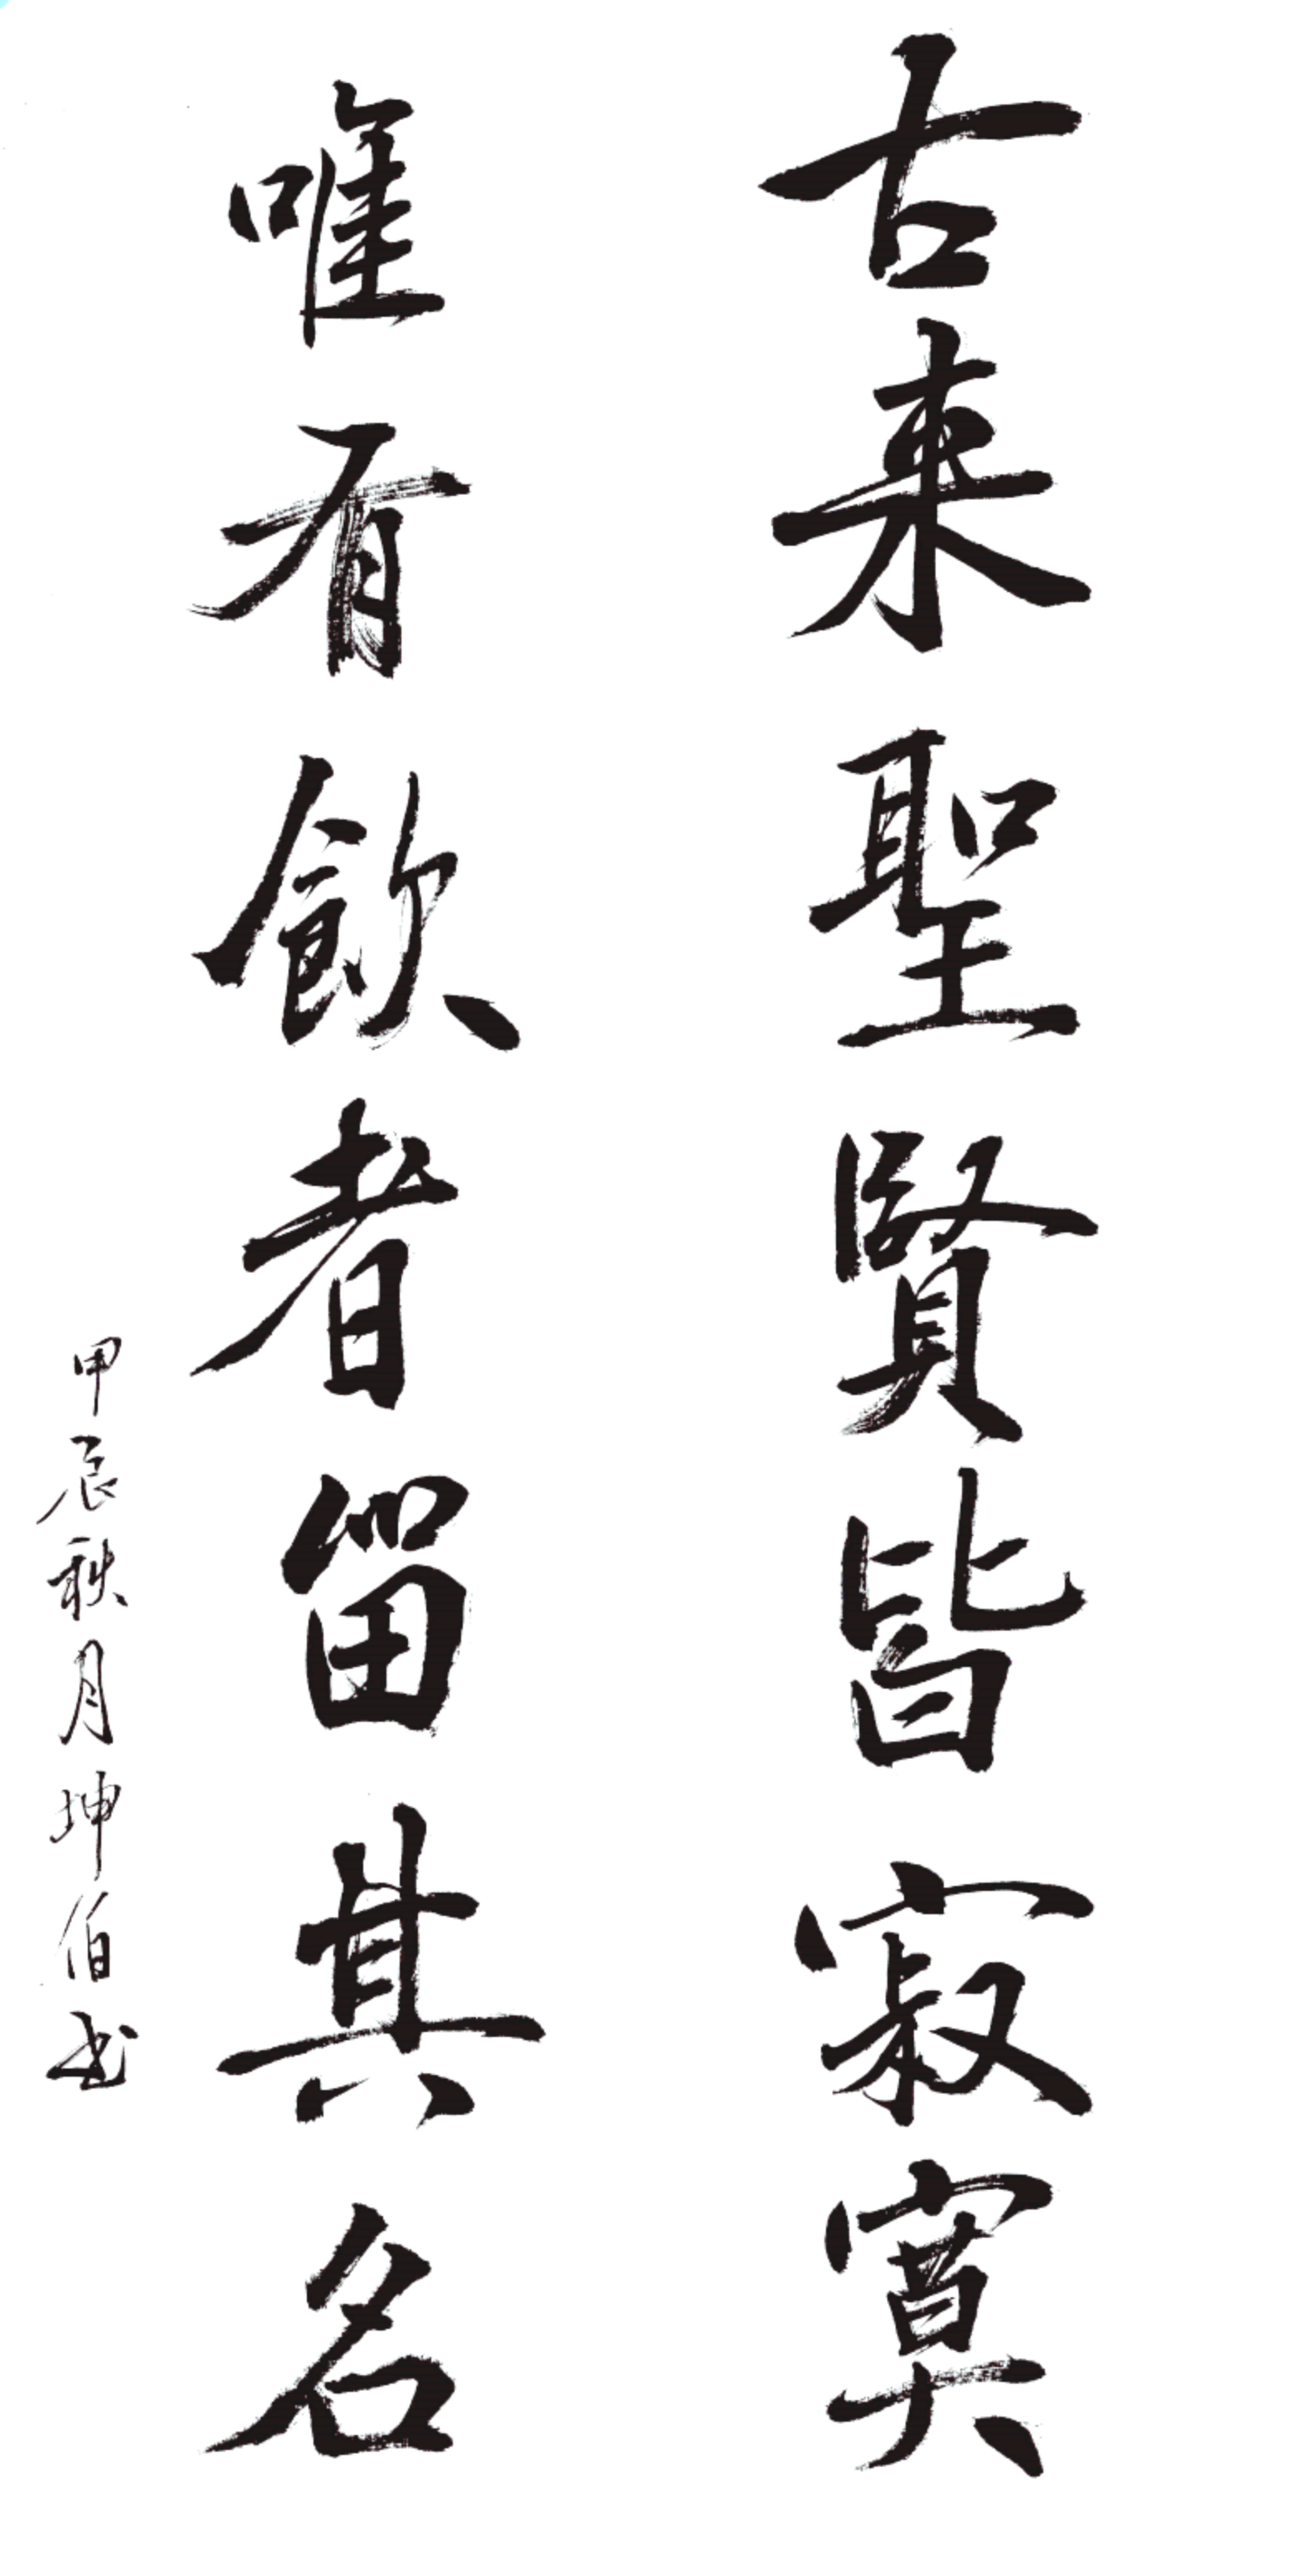 古来聖賢皆寂寞
唯有飲者留其名
甲辰秋月坤伯书